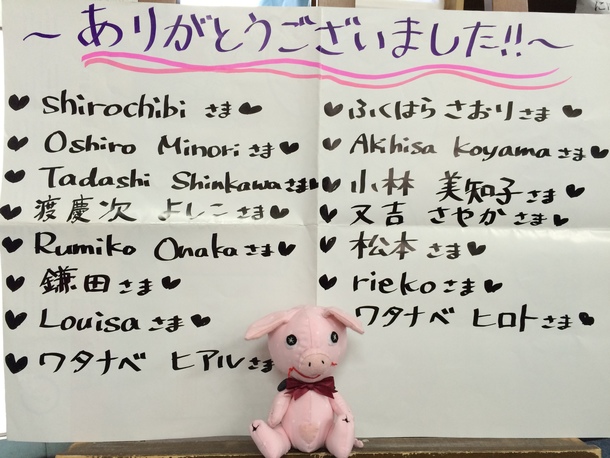 ～ありがとうございました!!～
♥ shirochibi さま♥
♥ Oshiro Minoriさま♥
♥ Tadashi Shinkawaさま♥
♥ 渡慶次 よしこさま♥
♥ Rumiko Onakaさま♥
♥ 鎌田さま♥
♥ Louisaさま♥
♥ ワタナベ ヒアルさま
♥ふくはら さおりさま♥
♥ Akihisa Koyamaさま♥
♥ 小林 美知子さま♥
♥ 又吉 さやかさま♥
♥ 松本さま♥
♥ riekoさま♥
ワタナベ ヒロトさま♥